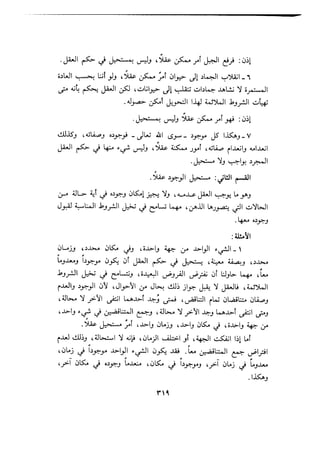 إذن: فرفع الجبل أمر ممكن عقلاً، وليس بمستحيل في حكم العقل.
٦ - انقلاب الجماد إلى حيوان أمر ممكن عقلاً، ولو أننا بحسب العادة
المستمرة لا نشاهد جمادات تنقلب إلى حيوانات، لكن العقل يحكم بأنه متى
تهيأت الشروط الملائمة لهذا التحول أمكن حصوله.
إذن: فهو أمر ممكن عقلاً، وليس بمستحيل.
٧ - وهكذا كل موجود - سوى الله تعالى - فوجوده وصفاته، وكذلك
انعدامه وانعدام صفاته، أمور ممكنة عقلاً، وليس شيء منها في حكم العقل
المجرد بواجب ولا مستحيل.
القسم الثاني: مستحيل الوجود عقلاً.
وهو ما يوجب العقل عدمه، ولا يجيز إمكان وجوده في أية حالة من
الحالات التي يتصورها الذهن، مهما تسامح في تخيل الشروط المناسبة لقبول
وجوده معها.
الأمثلة:
١ - الشيء الواحد من جهة واحدة، وفي مكان محدد، وزمان
محدد، وبصفة معينة، يستحيل في حكم العقل أن يكون موجوداً ومعدوماً
معاً، مهما حاول أن يفترض الفروض البعيدة، ويتسامح في تخيل الشروط
الملائمة، فالعقل لا يقبل جواز ذلك بحال من الأحوال، لأن الوجود والعدم
وصفان متناقضان تمام التناقض، فمتى وُجد أحدهما انتفى الآخر لا محالة،
ومتى انتفى أحدهما وجد الآخر لا محالة، وجمع المتناقضين في شيء واحد،
من جهة واحدة، في مكان واحد، وزمان واحد، أمر مستحيل عقلاً.
أما إذا انفكت الجهة، أو اختلف الزمان، فلا استحالة، وذلك لعدم
افتراض جمع المتناقضين معاً. فقد يكون الشيء الواحد موجوداً في زمان،
ومعدوماً في زمان آخر، وموجوداً في مكان، ومعدماً وجوده في مكان آخر،
وهكذا.
٣١٩